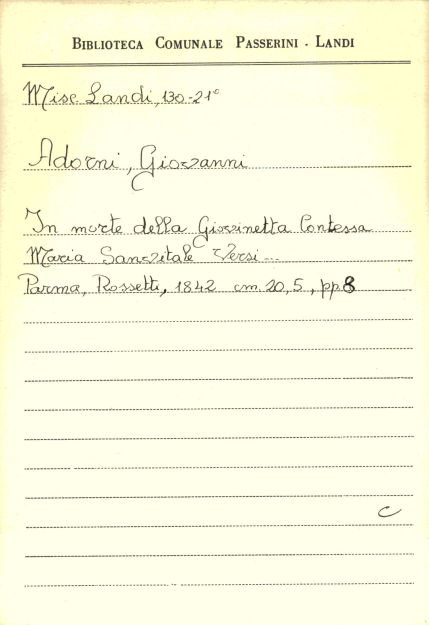 BIBLIOTECA COMUNALE PASSERINI - LANDI
Misc. Landi, 130-21°
Adorni, Giovanni
In morte della Giovinetta Contessa
Maria Sanvitale Versi...
Parma, Rossetti, 1842 cm. 20,5, pp. 8
C